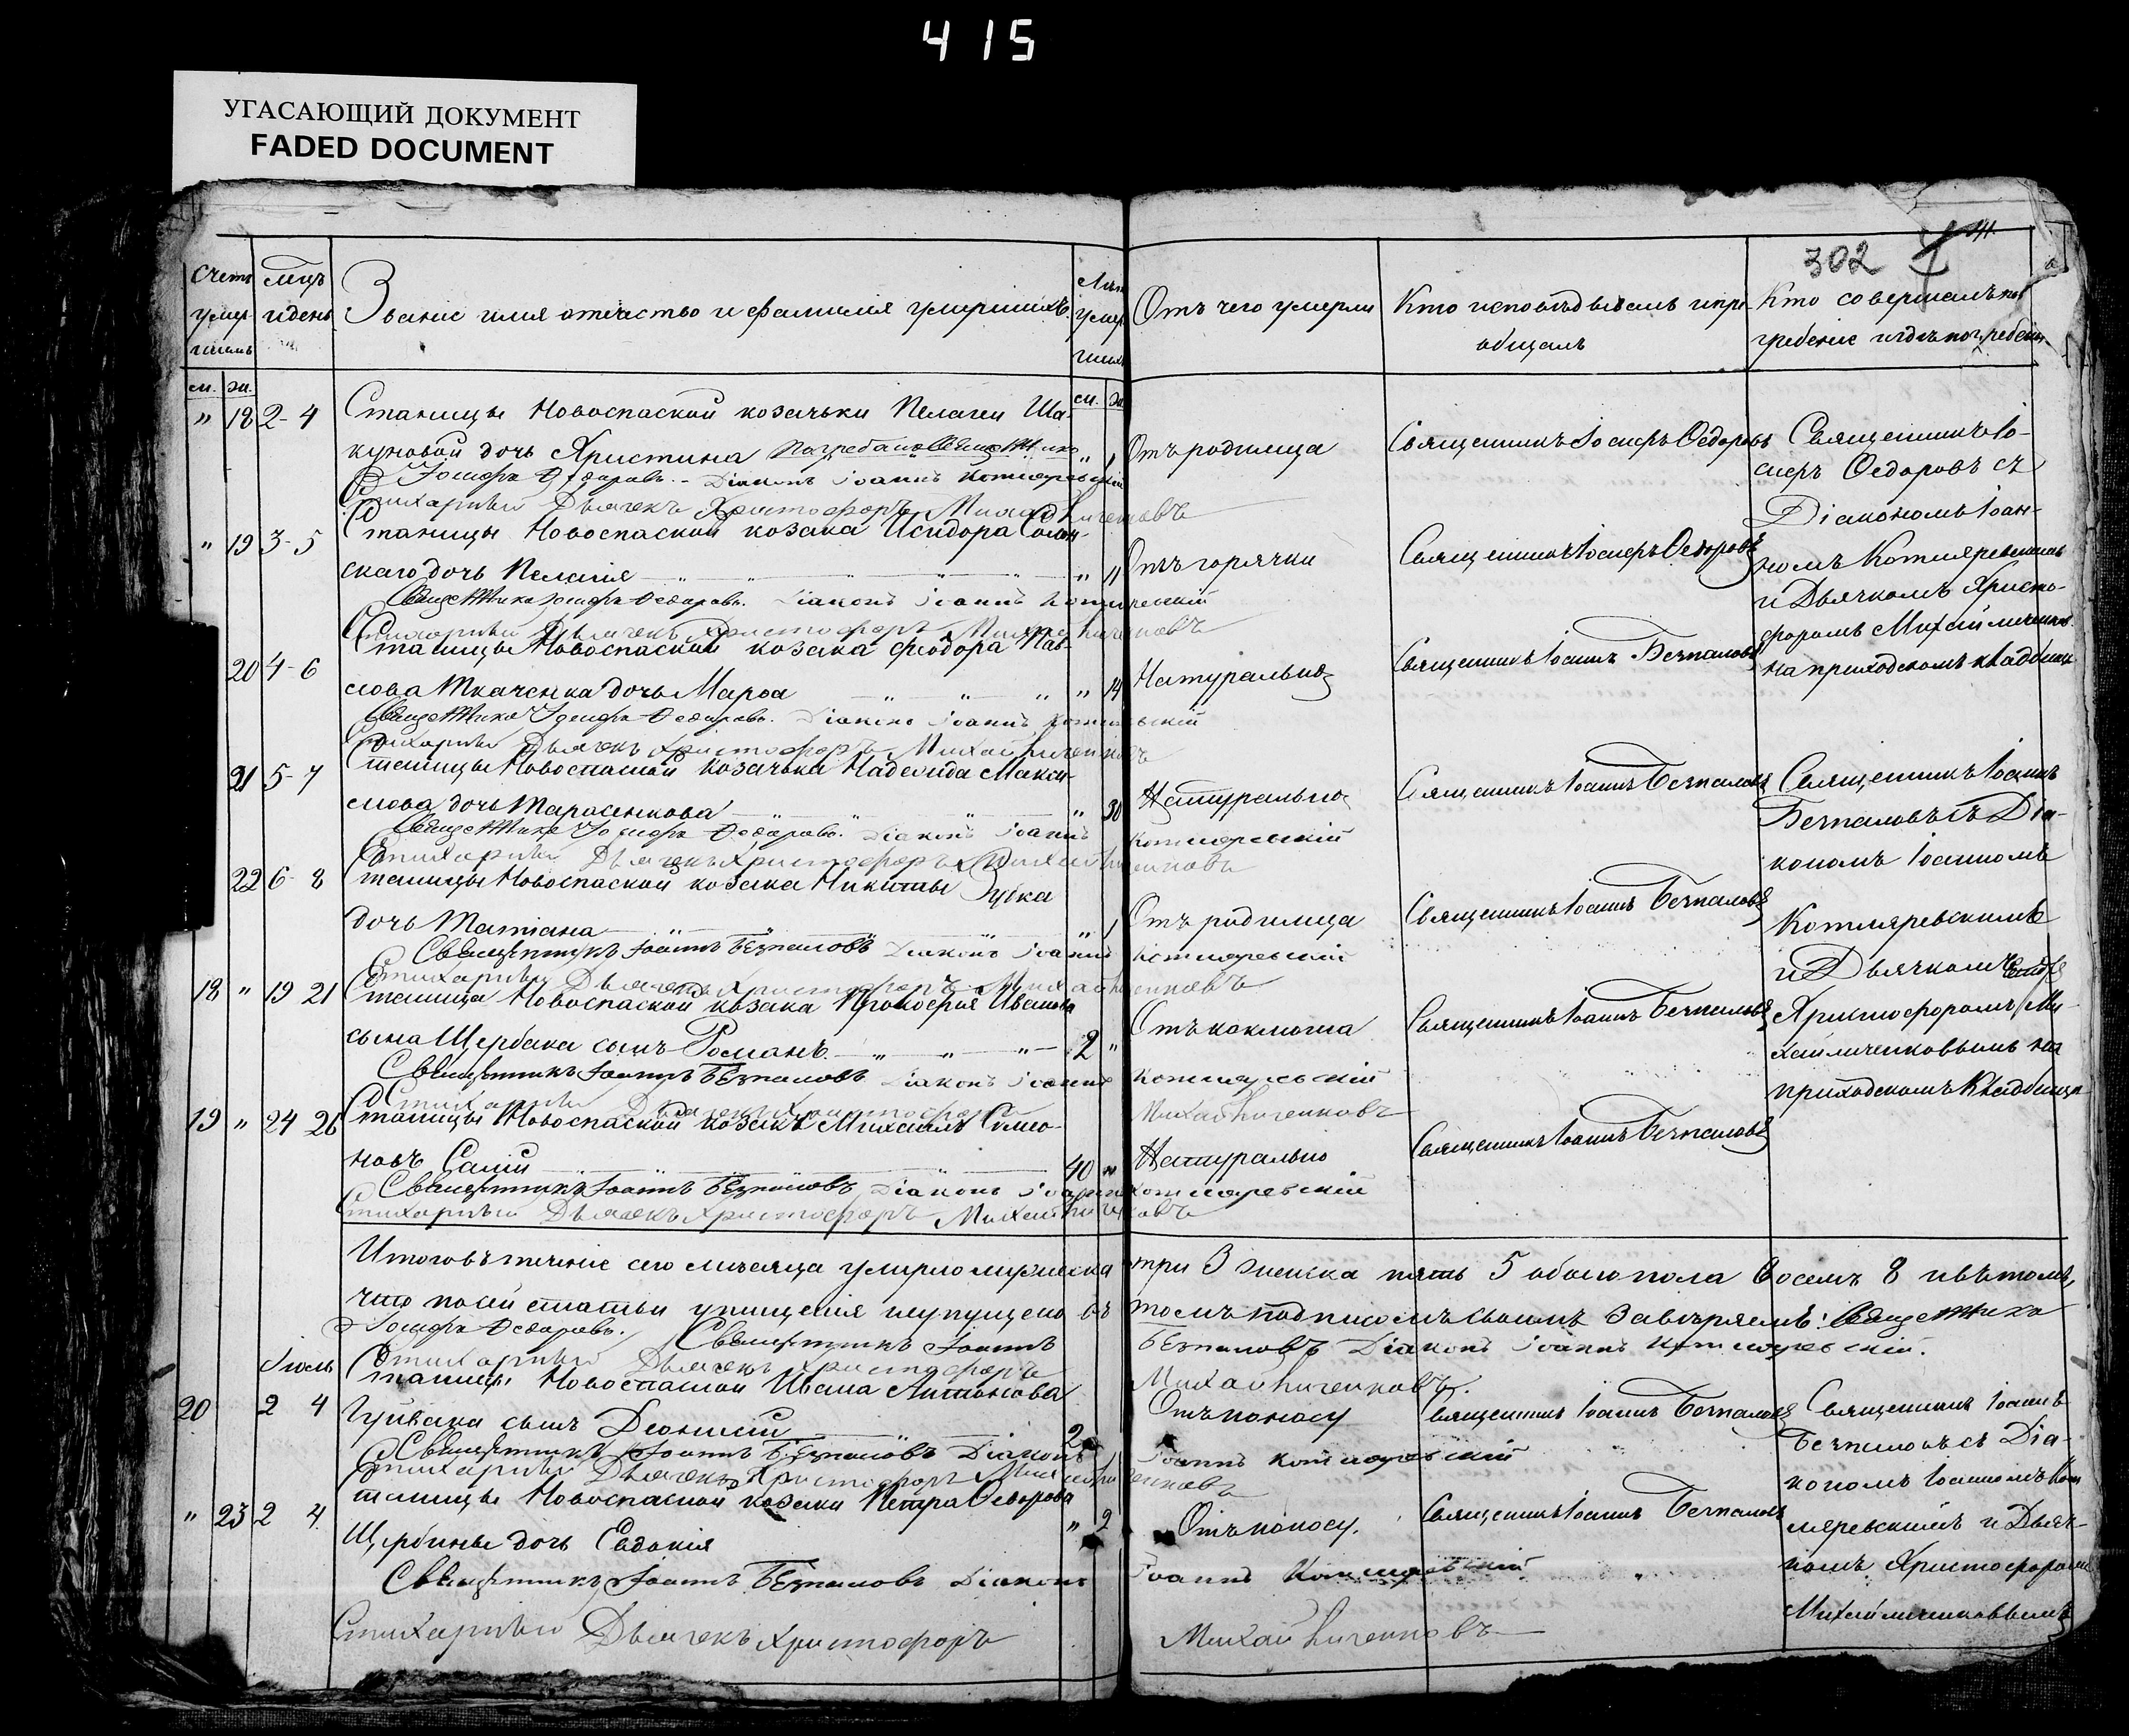 415
УГАСАЮЩИЙ ДОКУМЕНТ
FADED DOCUMENT
302
Счетъ умер шимъ
мцъ и день
Званіе имя отечество и фамилія умершихъ.
Лѣт умер шимъ
Отъ чего умерли
Кто исповѣдывалъ и прі общалъ
Кто совершалъ по гребеніе и гдѣ погребены
м. ж.
м. ж.
" 18 2-4 Станицы Новоспаской козачьки Пелагеи Ша-
куновой дочь Христина " 1 Отъ родимца Священникъ Іосифъ Ѳедоровъ
Іосифъ Ѳедоровъ. Діаконъ Іоаннъ Котляревскій
Стихарный Дьячекъ Христофоръ Михайличенковъ
" 19 3-5 Станицы Новоспаской козака Исидора
скаго дочь Пелагія " 11 Отъ горячки Священникъ Іосифъ Ѳедоровъ
Іосифъ Ѳедоровъ. Діаконъ Іоаннъ Котляревскій
Стихарный Дьячекъ Христофоръ Михайличенковъ
Священникъ Іо-
сифъ Ѳедоровъ съ
Діакономъ Іоан-
номъ Котляревскимъ
и Дьячкомъ Христо-
форомъ Михайличенков.
на приходскомъ кладбище
20 4-6 Станицы Новоспаской козака Феодора Пав-
лова Ткаченка дочь Марфа " 14 Натурально Священникъ Іоаннъ Безпаловъ
Іосифъ Ѳедоровъ. Діаконъ Іоаннъ Котляревскій
Стихарный Дьячекъ Христофоръ Михайличенковъ
21 5-7 Станицы Новоспаской козачька Надежда Макси-
мова дочь Тарасенкова " 30 Натурально Священникъ Іоаннъ Безпаловъ
Іосифъ Ѳедоровъ. Діаконъ Іоаннъ Котляревскій
Стихарный Дьячекъ Христофоръ Михайличенковъ
22 6-8 Станицы Новоспаской козака Никиты Зубка
дочь Татіана " 1 Отъ родимца Священникъ Іоаннъ Безпаловъ
Священникъ Іоаннъ Безпаловъ Діаконъ Іоаннъ Котляревскій
Стихарный Дьячекъ Христофоръ Михайличенковъ
18 " 19 21 Станицы Новоспаской козака Прокофія Иванова
сына Щербака сынъ Романъ 2 " Отъ коклюша Священникъ Іоаннъ Безпаловъ
Священникъ Іоаннъ Безпаловъ Діаконъ Іоаннъ Котляревскій
Стихарный Дьячекъ Христофоръ Михайличенковъ
Священникъ Іоаннъ
Безпаловъ съ Діа-
кономъ Іоанномъ
Котляревскимъ
и Дьячкомъ
Христофоромъ Ми-
хайличенковымъ на
приходскомъ кладбище
19 " 24 26 Станицы Новоспаской козакъ Михаилъ Симо-
новъ 40 " Натурально Священникъ Іоаннъ Безпаловъ
Священникъ Іоаннъ Безпаловъ Діаконъ Іоаннъ Котляревскій
Стихарный Дьячекъ Христофоръ Михайличенковъ
Итого въ теченіе сего мѣсяца умерло мужеска три 3 женска пять 5 обоего пола восемъ 8 и въ томъ,
что по сей статьи упущенія не упущено въ томъ подписомъ своимъ Заверяемъ:
Іосифъ Ѳедоровъ. Священникъ Іоаннъ Безпаловъ Діаконъ Іоаннъ Котляревскій.
Стихарный Дьячекъ Христофоръ Михайличенковъ.
Іюль
20 2 4 Станицы Новоспаской Ивана Антонова
сынъ Діонисій 2 Отъ поносу Священникъ Іоаннъ Безпаловъ
Священникъ Іоаннъ Безпаловъ Діаконъ Іоаннъ Котляревскій
Стихарный Дьячекъ Христофоръ Михайличенковъ
" 23 2 4 Станицы Новоспаской козака Петра Ѳеодорова
Щербины дочь Евдокія " 2 Отъ поносу. Священникъ Іоаннъ Безпаловъ
Священникъ Іоаннъ Безпаловъ Діаконъ Іоаннъ Котляревскій
Стихарный Дьячекъ Христофоръ Михайличенковъ
Священникъ Іоаннъ
Безпаловъ съ Діа-
кономъ Іоанномъ Кот
ляревскимъ и Дьяч-
комъ Христофоромъ
Михайличенковымъ